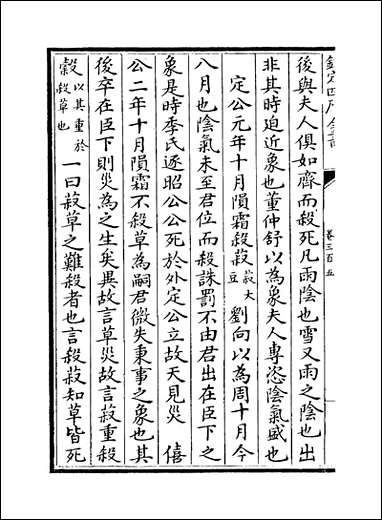 欽定四庫全書
卷三百五
後與夫人俱如齊而殺死凡雨陰也雪又雨之陰也出
非其時迫近象也董仲舒以為象夫人專恣陰氣盛也
定公元年十月隕霜殺菽菽大豆劉向以為周十月今
八月也陰氣未至君位而殺誅罰不由君出在臣下之
象是時季氏逐昭公公死於外定公立故天見災 僖
公二年十月隕霜不殺草為嗣君微失秉事之象也其
後卒在臣下則災為之生矣異故言草災故言菽重殺
穀以其重於殺草也一曰菽草之難殺者也言殺菽知草皆死